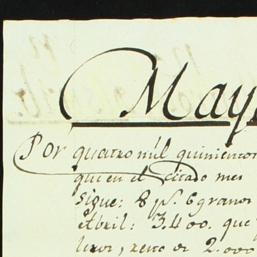 May
Por quatro mil quinientos
que en el citado mes
Sigue: 8 ps. 6 granos
Abril: 3.400. que
resto de 2.000